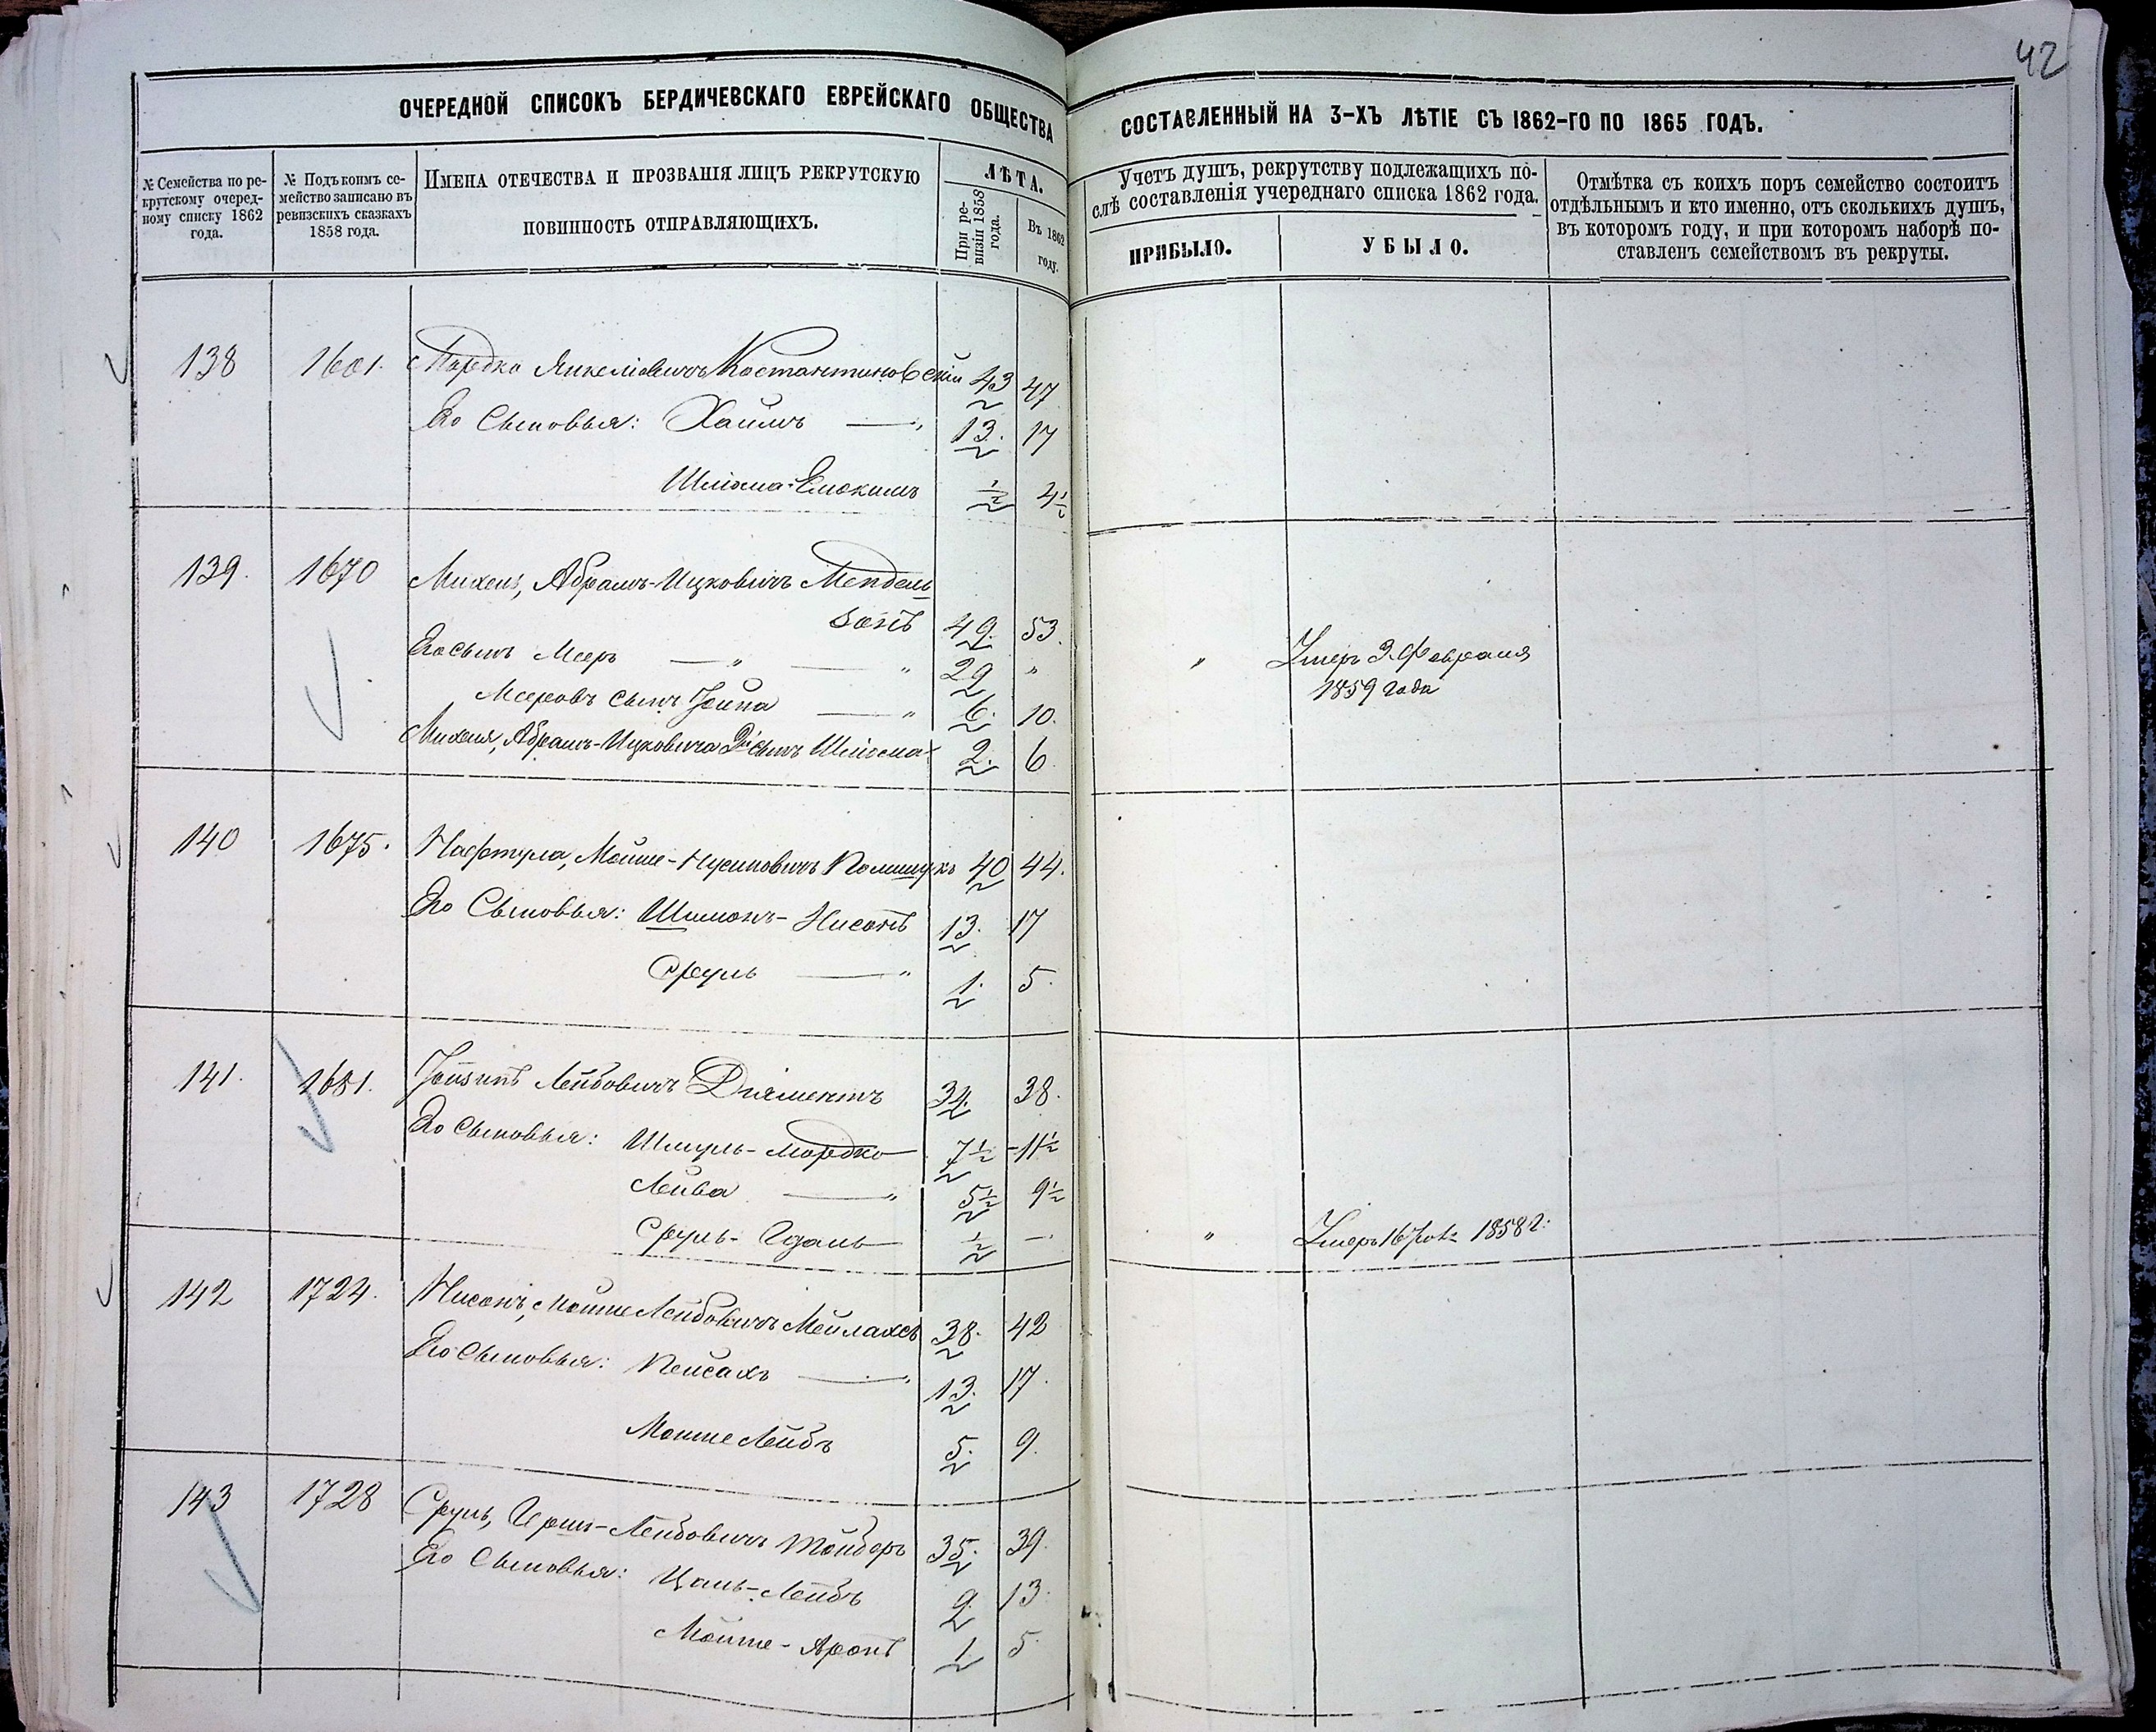 42
ОЧЕРЕДНОЙ СПИСОКЪ БЕРДИЧЕВСКАГО ЕВРЕЙСКАГО ОБЩЕСТВА
СОСТАВЛЕННЫЙ НА 3-ХЪ ЛѢТІЕ СЪ 1862-ГО ПО 1865 ГОДЪ.
№ Семейства по ре-
крутскому очеред-
ному списку 1862
года.
№ Подъ коимъ се-
мейство записано въ
ревизскихъ сказкахъ
1858 года.
ИМЕНА ОТЕЧЕСТВА И ПРОЗВАНІЯ ЛИЦЪ РЕКРУТСКУЮ
ПОВИННОСТЬ ОТПРАВЛЯЮЩИХЪ.
ЛѢТА.
При ре-
визіи 1858
года.
Въ 1862
году.
Учетъ душъ, рекрутству подлежащихъ по-
слѣ составленія учереднаго списка 1862 года.
ПРИБЫЛО.
УБЫЛО.
Отмѣтка съ коихъ поръ семейство состоитъ
отдѣльнымъ и кто именно, отъ сколькихъ душъ,
въ которомъ году, и при которомъ наборѣ по-
ставленъ семействомъ въ рекруты.
138 1601. Мордко Янкеліовичъ Костантиновскій 43 47
Его Сыновья: Хаимъ — " 13. 17
Шліома- ½ 4½
139. 1670 Михель, Абрамъ-Ицковичъ Мендель
зонъ 49. 53.
Его сынъ Меер — " — " 29 " " Умеръ 3. Февраля
1859 года
Мееровъ сынъ Іойна — " 6. 10.
Михеля, Абрамъ-Ицковича 2й сынъ Шліома 2. 6
140 1675. Нафтула, Мойше-Нусиновичъ Полищукъ 40 44.
Его Сыновья: Шимонъ-Нисонъ 13. 17
Сруль — " 1. 5.
141. 1681. Іойзипъ Лейбовичъ Диаментъ 34. 38.
Его Сыновья: Шмуль-Мордко 7½ 11½
Лейба — " 5½ 9½
Сруль- ½ — " Умеръ 16 1858 г.
142 1724. Нисонъ, Мойше Лейбовичъ Мейлахсъ 38. 42
Его Сыновья: Пейсахъ — " 13. 17.
Мойше Лейбъ 5. 9.
143 1728 Сруль, Герш-Лейбовичъ Тойберъ 35. 39.
Его Сыновья: Цаль-Лейбъ 9. 13.
Мойше-Аронъ 1. 5.